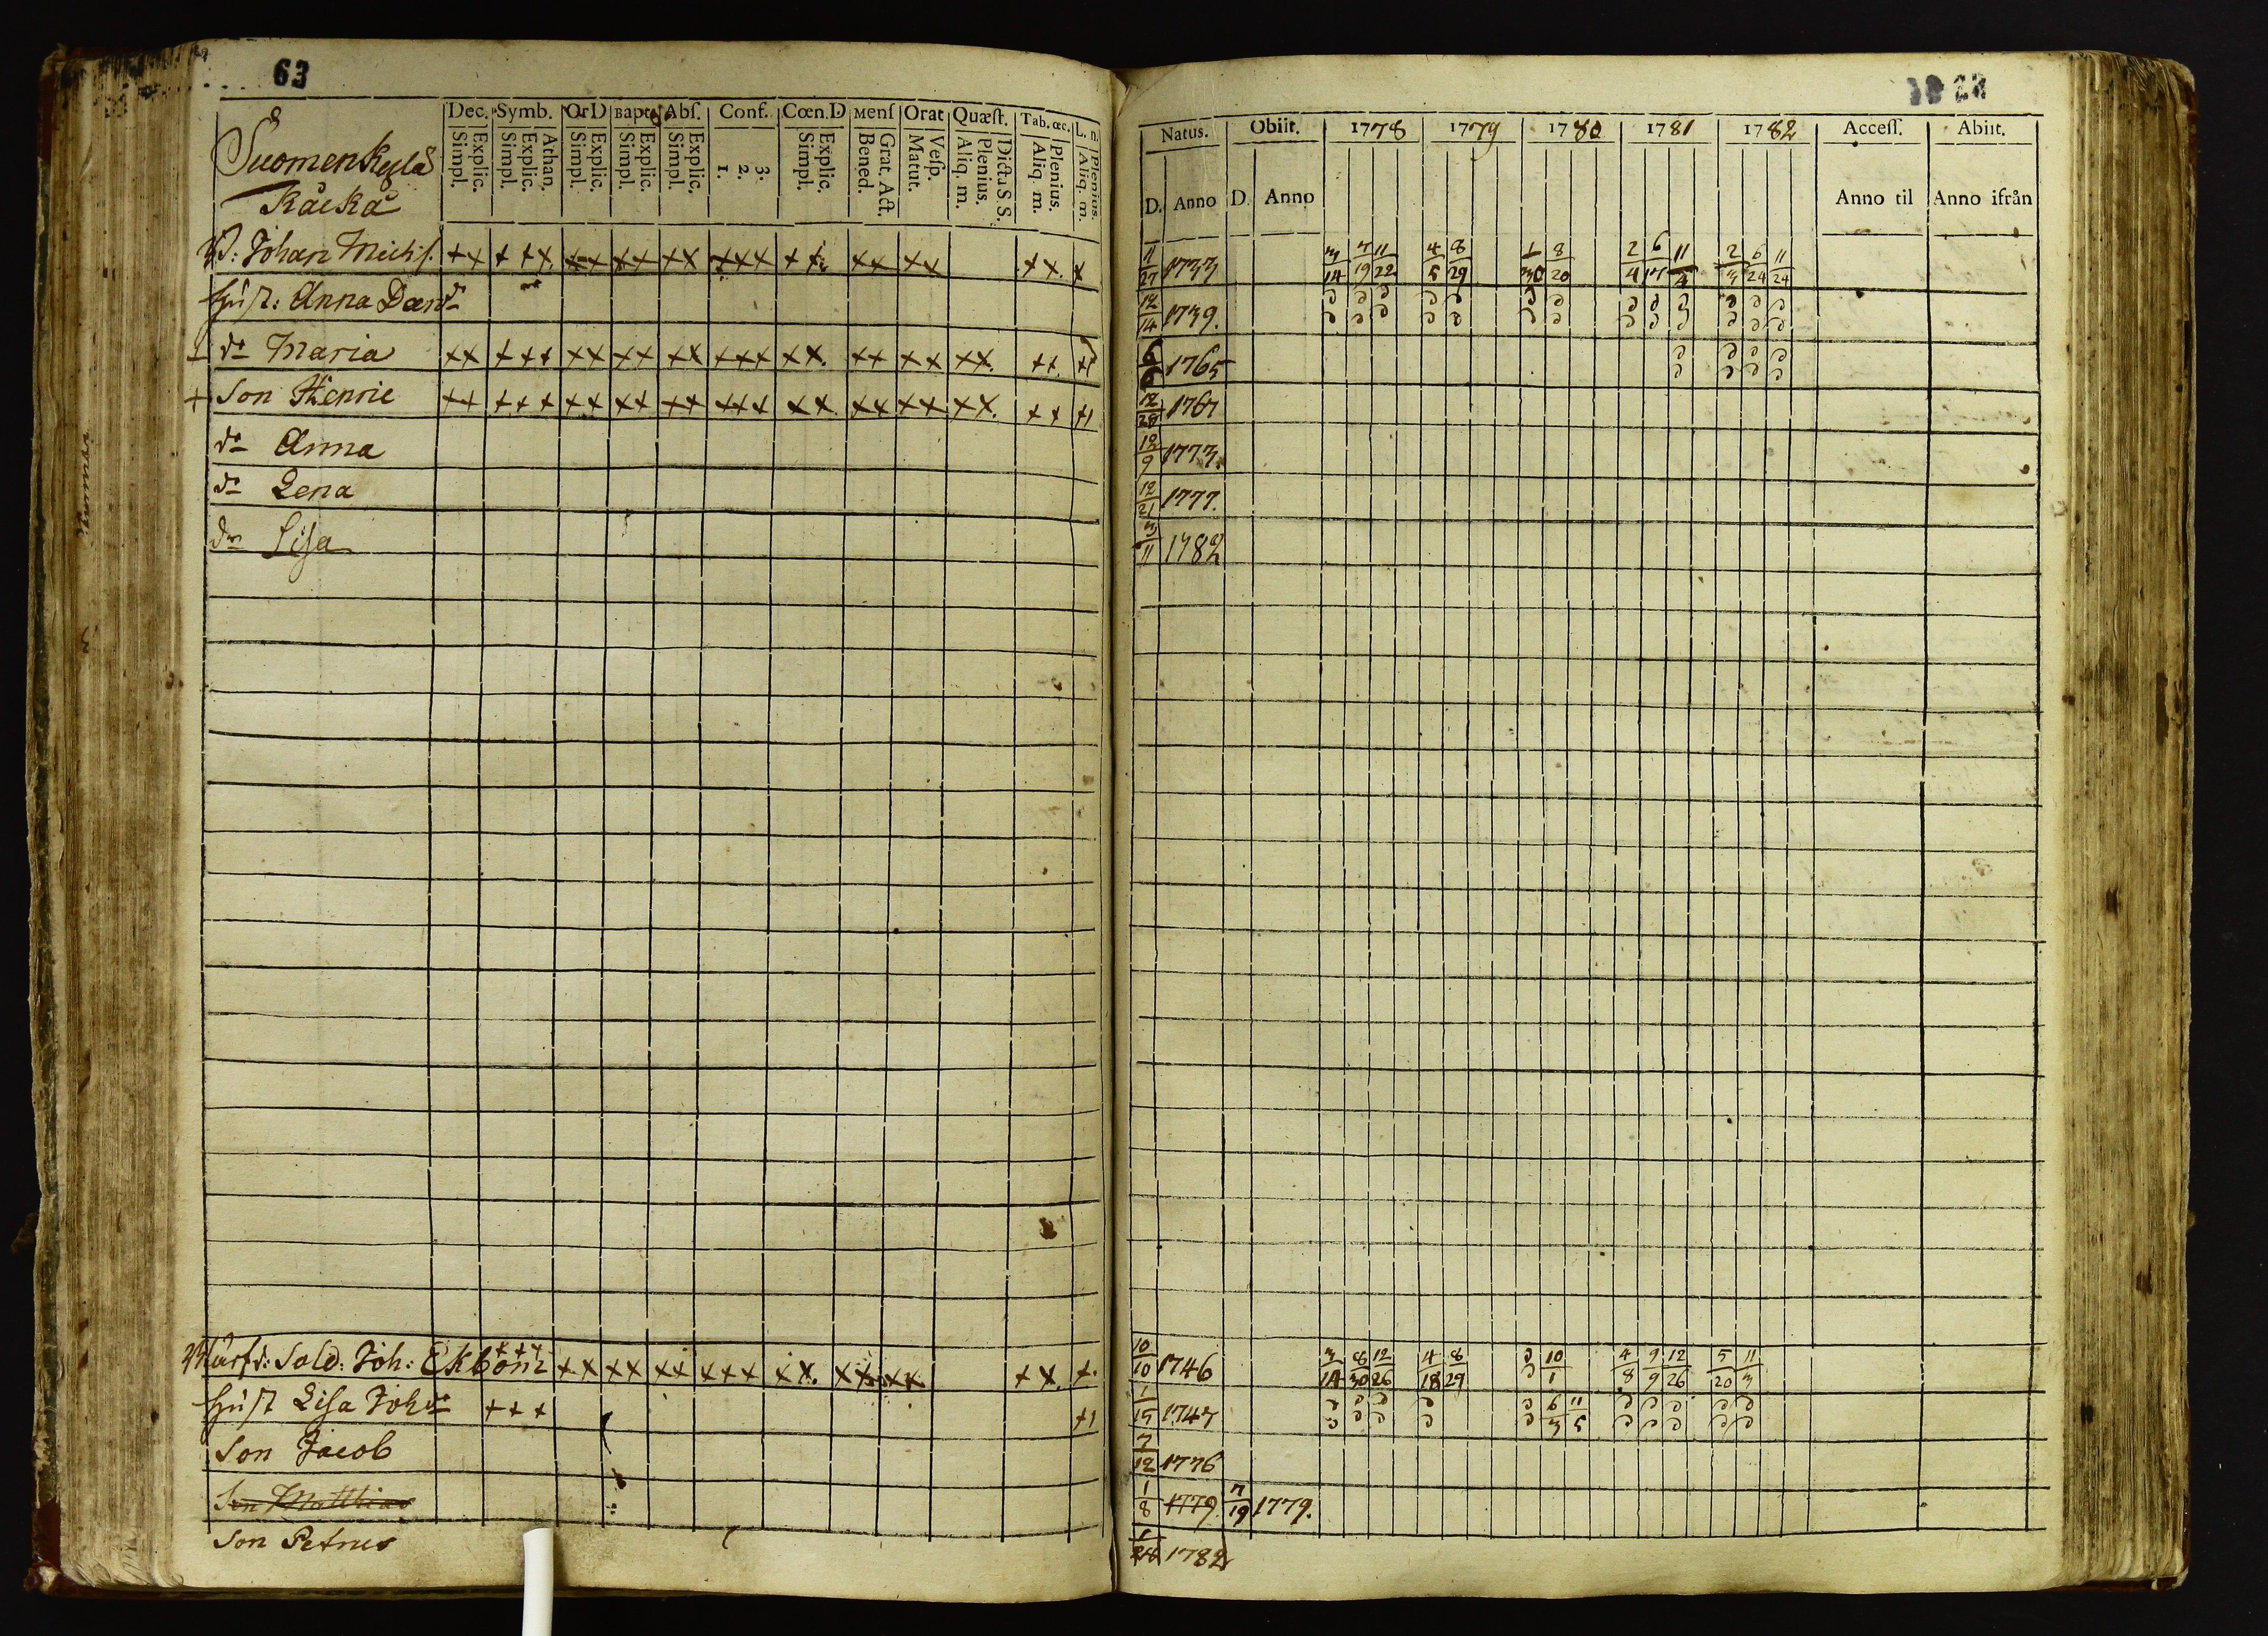 63
8
Suomenkylä
Käckä
Dec. Symb. Or D Bapt. Abs. Conf. Cœn. D Mens Orat Quæst. Tab. œc. L. n.
Simpl. Explic. Simpl. Explic. Athan. Simpl. Explic. Simpl. Explic. Simpl. Explic. 1. 2. 3. Simpl. Explic. Bened. Grat. Act. Matut. Vesp. Aliq. m. Plenius. Dicta S S. Aliq. m. Plenius. Aliq. m. Plenius.
Natus. Obiit. 1778 1779 1780 1781 1782 Access. Abiit.
D. Anno D. Anno Anno til Anno ifrån
Johan Mich: ++ +++ ++ ++ ++ +++ ++ ++ ++ ++ + 11/27 1733 3/14 7/19 11/22 4/5 8/29 1/30 8/20 2/4 6/17 11/4 2/3 6/24 11/24
Hust: Anna Davdr 12/14 1739.
dr Maria ++ +++ ++ ++ ++ +++ ++ ++ ++ ++ ++ 6/6 1765
Son Henric ++ +++ ++ ++ ++ +++ ++ ++ ++ ++ ++ +1 12/28 1767
dr Anna 12/9 1773.
dr Lena 12/21 1777.
dr Lisa 3/11 1782
Sold: Joh: Ekbom +++ ++ ++ ++ +++ ++ ++ ++ ++ + 10/10 1746 3/14 8/30 12/26 4/18 8/29 10/1 4/8 9/9 12/26 5/20 11/3
Hust Lisa Johdr +++ +1 1/15 1747 6/3 11/5
Son Jacob 7/12 1776
Son Matthias 1/8 1779 7/19 1779.
Son Petrus 1/28 1782